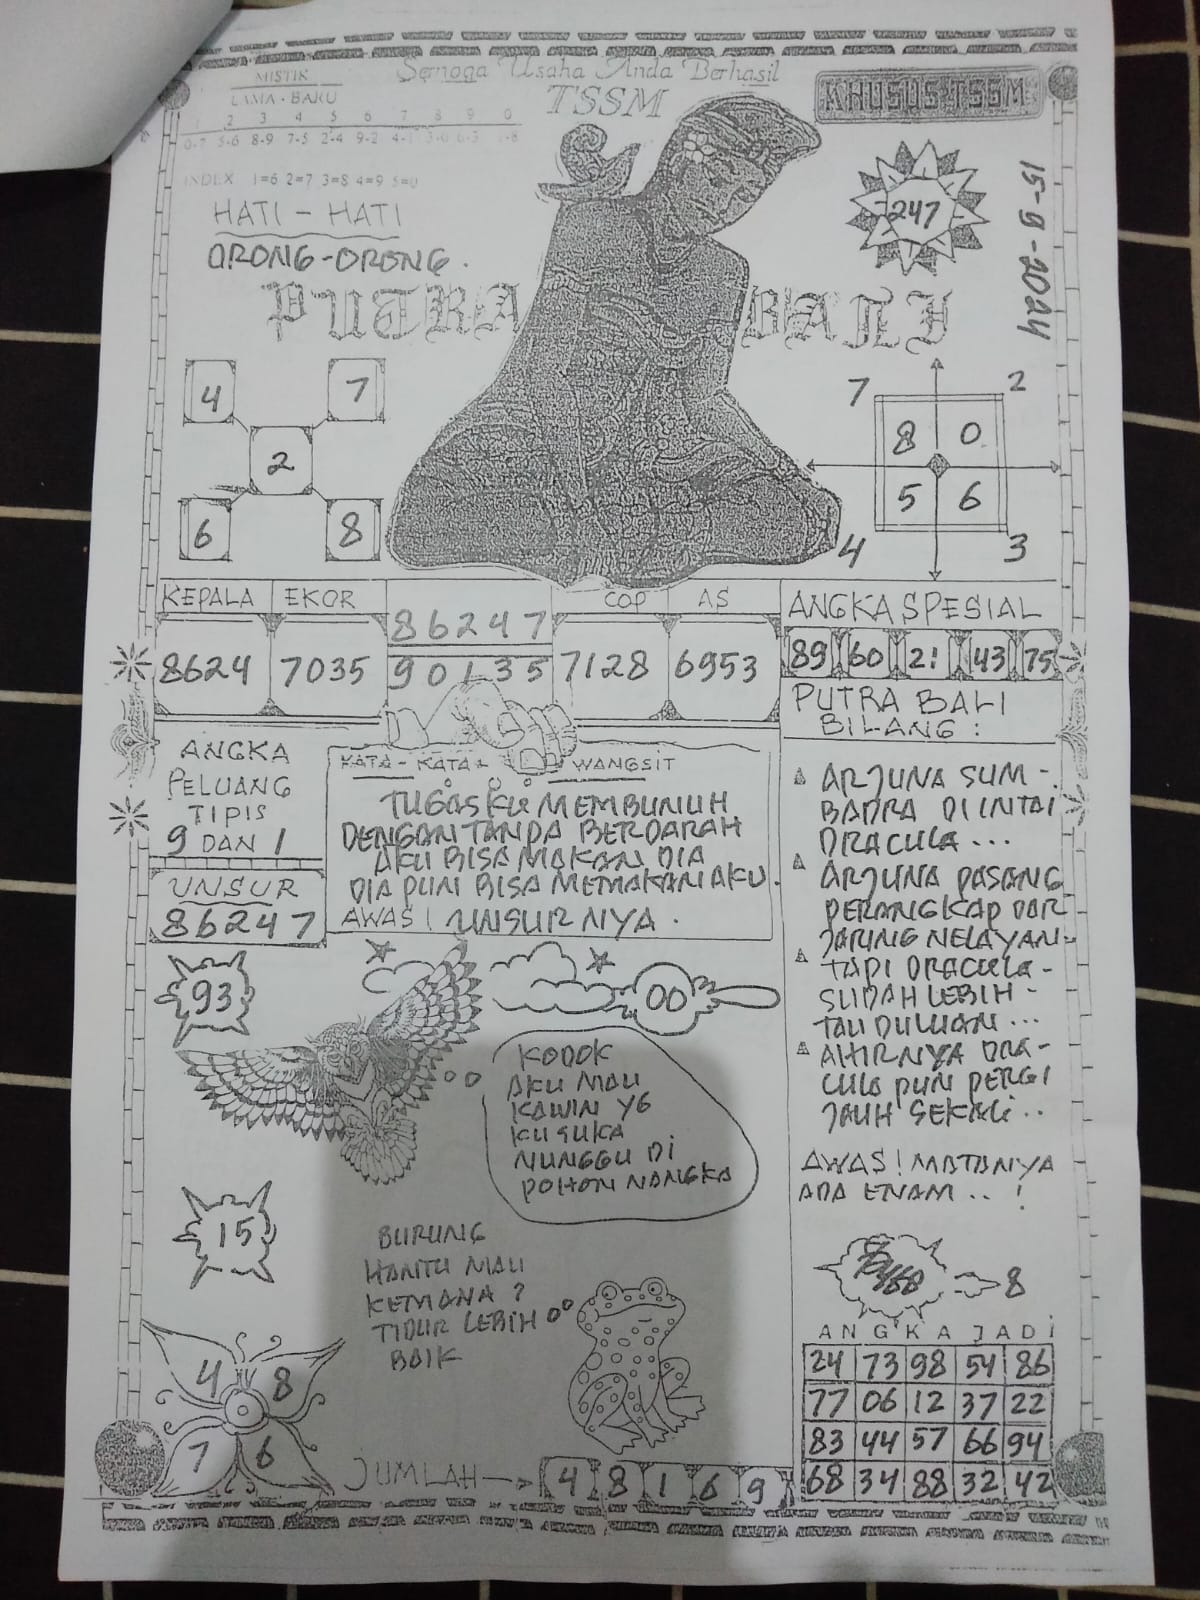 Semoga Usaha Anda Berhasil
TSSM
KHUSUS TSSM
MISTIK
LAMA - BARU
1 2 3 4 5 6 7 8 9 0
0-7 5-6 8-9 7-5 2-4 9-2 4-1
INDEX 1=6 2=7 3=8 4=9 5=0
HATI - HATI
ORONG-ORONG.
247
15-9-2024
PUTRA BALI
4 7
2
6 8
7 2
8 0
5 6
4 3
KEPALA EKOR COP AS
86247
8624 7035 90135 7128 6953
ANGKA SPESIAL
89 60 21 43 75
PUTRA BALI
BILANG :
ARJUNA SUM-
BADRA DI INTAI
DRACULA...
ARJUNA PASANG
PERANGKAP DAR
JARING NELAYAN-
TAPI DRACULA-
SUDAH LEBIH-
TAU DULUAN...
AHIRNYA DRA-
CULA PUN PERGI
JAUH SEKALI..
AWAS! MATANYA
ADA ENAM.. !
ANGKA
PELUANG
TIPIS
9 DAN 1
UNSUR
86247
KATA - KATA WANGSIT
TUGASKU MEMBUNUH
DENGAN TANDA BERDARAH
AKU BISA MAKAN DIA
DIA PUN BISA MEMAKAN AKU.
AWAS! UNSURNYA.
93
00
KODOK
AKU MAU
KAWIN YG
KU SUKA
NUNGGU DI
POHON NANGKA
15
BURUNG
HANTU MAU
KEMANA?
TIDUR LEBIH
BAIK
8
4 8
7 6
JUMLAH
4 8 1 6 9
ANGKA JADI
24 73 98 54 86
77 06 12 37 22
83 44 57 66 94
68 34 88 32 42